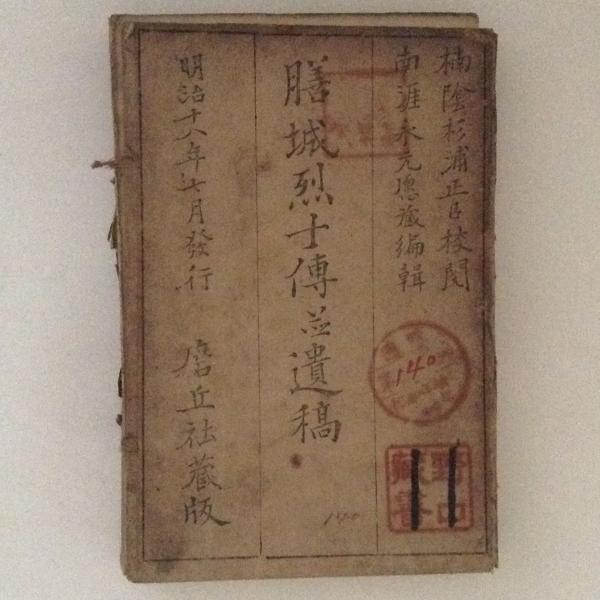 楠陰杉浦正臣校閲
南涯永元愿蔵編輯
膳城烈士傳並遺稿
明治十八年七月發行 詹丘社蔵版
140
野口
蔵書